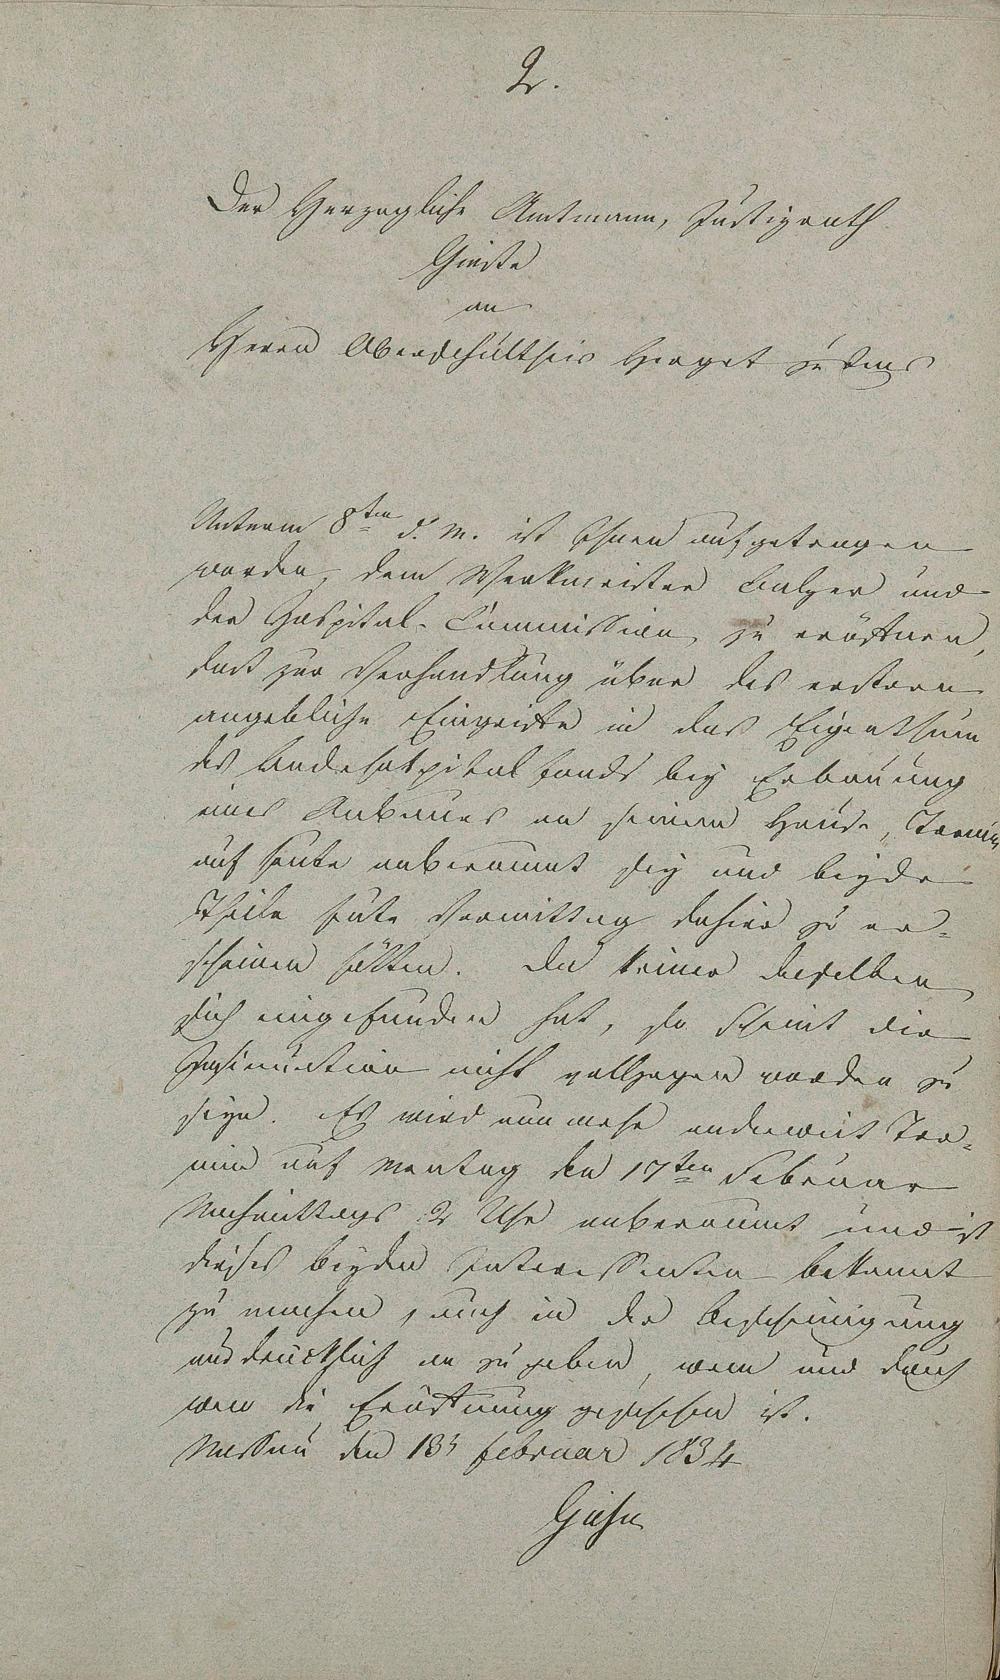 2.
Der Herzogliche Amtmann, Justizrath
Giesse
an
Herrn Oberschultheis Herget zu Ems
Unterm 8ten d. M. ist Ihnen aufgetragen
worden, dem Werkmeister Balzer und
der Hospital-Commission, zu eröffnen,
daß zur Verhandlung über des erstern
angebliche Eingriffe in das Eigenthum
des Landeshospitalfonds bey Erbauung
eines Anbaues an seinem Hause, Termin
auf heute anberaumt sey und beyde
Theile heute Vormittag dahier zu er-
scheinen hätten. Da keiner derselben
sich eingefunden hat, so scheint die
Insinuation nicht vollzogen worden zu
seyn. Es wird nunmehr anderweit Ter-
min auf Montag den 17ten Februar
Nachmittags 2 Uhr anberaumt und ist
dieses beyden Interessenten bekannt
zu machen, auch in der Bescheinigung
ausdrücklich an zu geben, wem und durch
wen die Eröffnung geschehen ist.
Nassau den 13t Februar 1834
Giesse